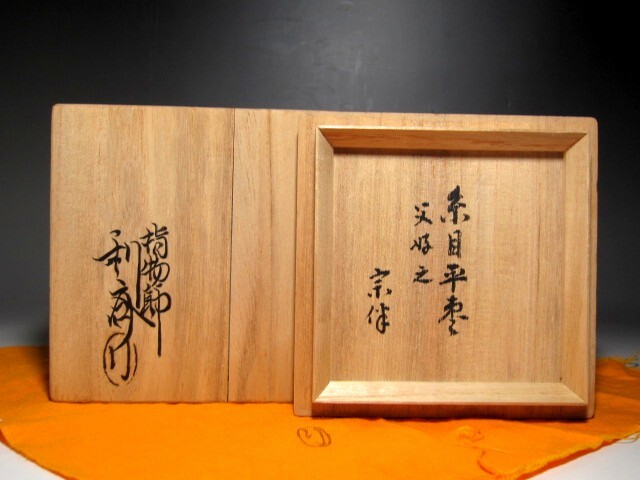 糸目平棗
父好之
宗伴
指物師
利斎